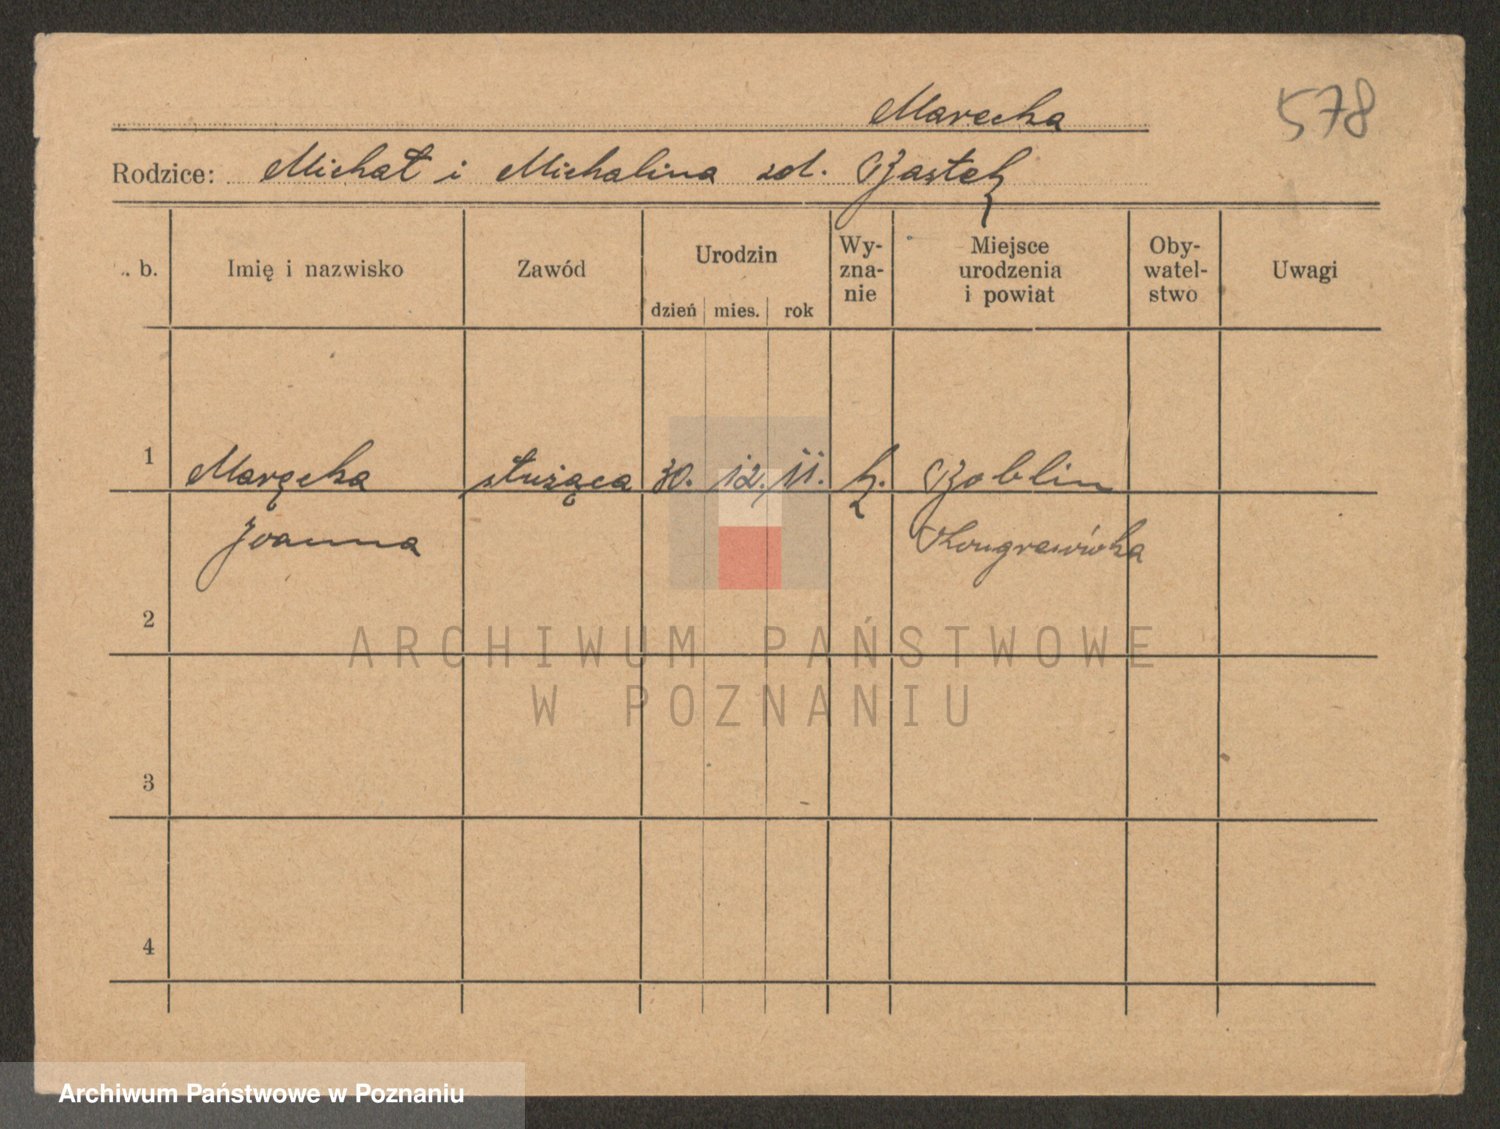 Marecka
578
Rodzice: Michał i Michalina zd. Bąstek
. b. Imię i nazwisko Zawód Urodzin dzień mies. rok Wy-
zna-
nie Miejsce
urodzenia
i powiat Oby-
watel-
stwo Uwagi
1 Maręcka służąca 30. 12. 11. k. Goblin
Joanna Kongresówka
2
ARCHIWUM PAŃSTWOWE
W POZNANIU
3
4
Archiwum Państwowe w Poznaniu